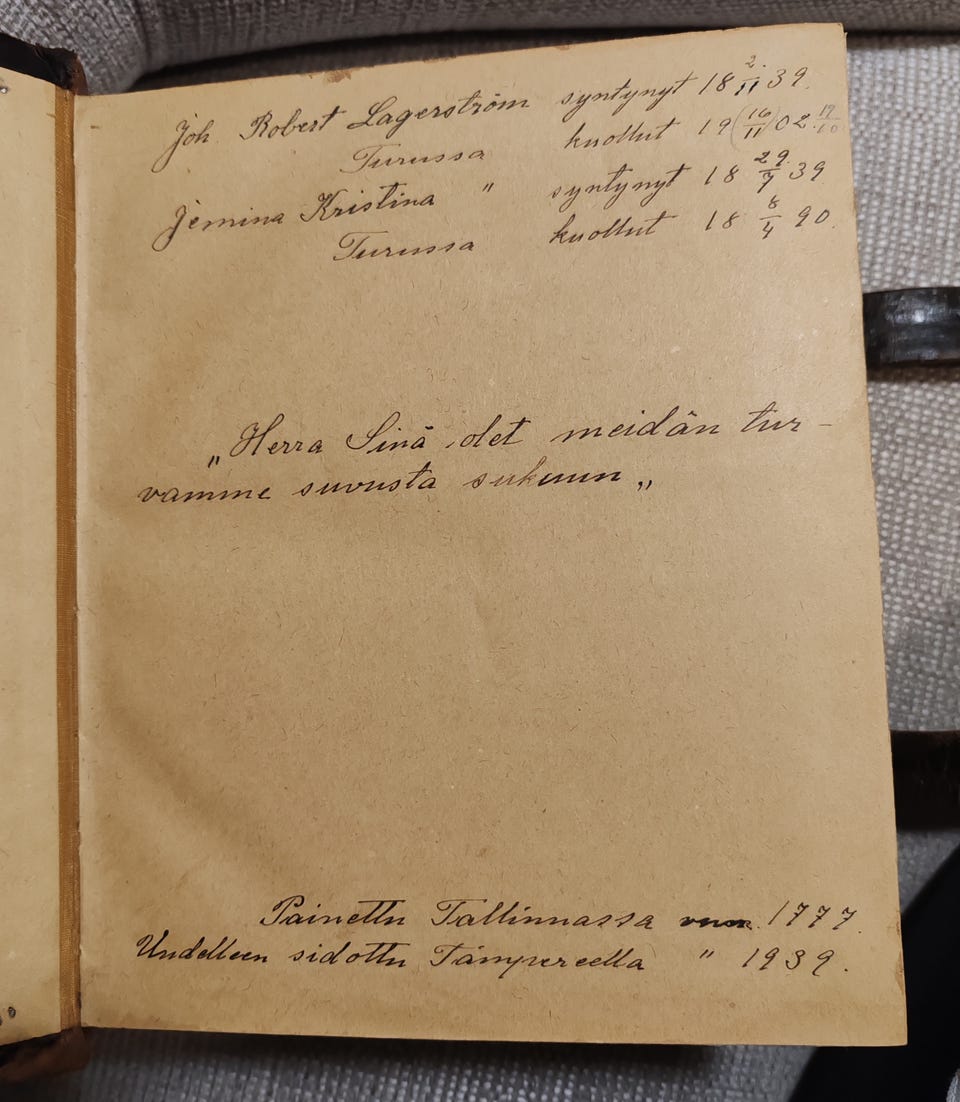 Joh Robert Lagerström syntynyt 18 2/11 39.
Turussa kuollut 19 (16/11) 02 19/10
Jemina Kristina " syntynyt 18 29/7 39
Turussa kuollut 18 8/4 90.
„Herra Sinä olet meidän tur-
vamme suvusta sukuun „
Painettu Tallinnassa vuon. 1777.
Uudelleen sidottu Tampereella " 1939.